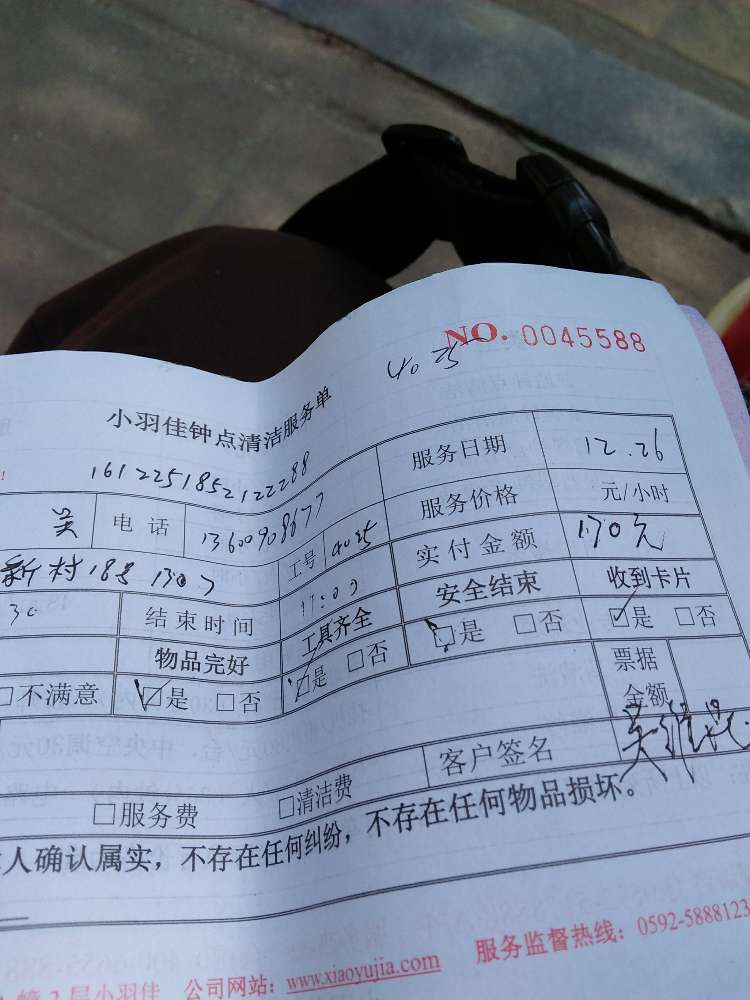 NO. 0045588
4025
小羽佳钟点清洁服务单
1612251852122288
吴 电话 13600908677 服务日期 12.26
工号 4025 服务价格 元/小时
新村18号130 实付金额 170元
30 结束时间 17:00 工具齐全 安全结束 收到卡片
物品完好 □是 □否 □是 □否 □是 □否
□不满意 □是 □否 票据金额
□服务费 □清洁费 客户签名
人确认属实，不存在任何纠纷，不存在任何物品损坏。
幢2层小羽佳 公司网站：www.xiaoyujia.com 服务监督热线：0592-5888123